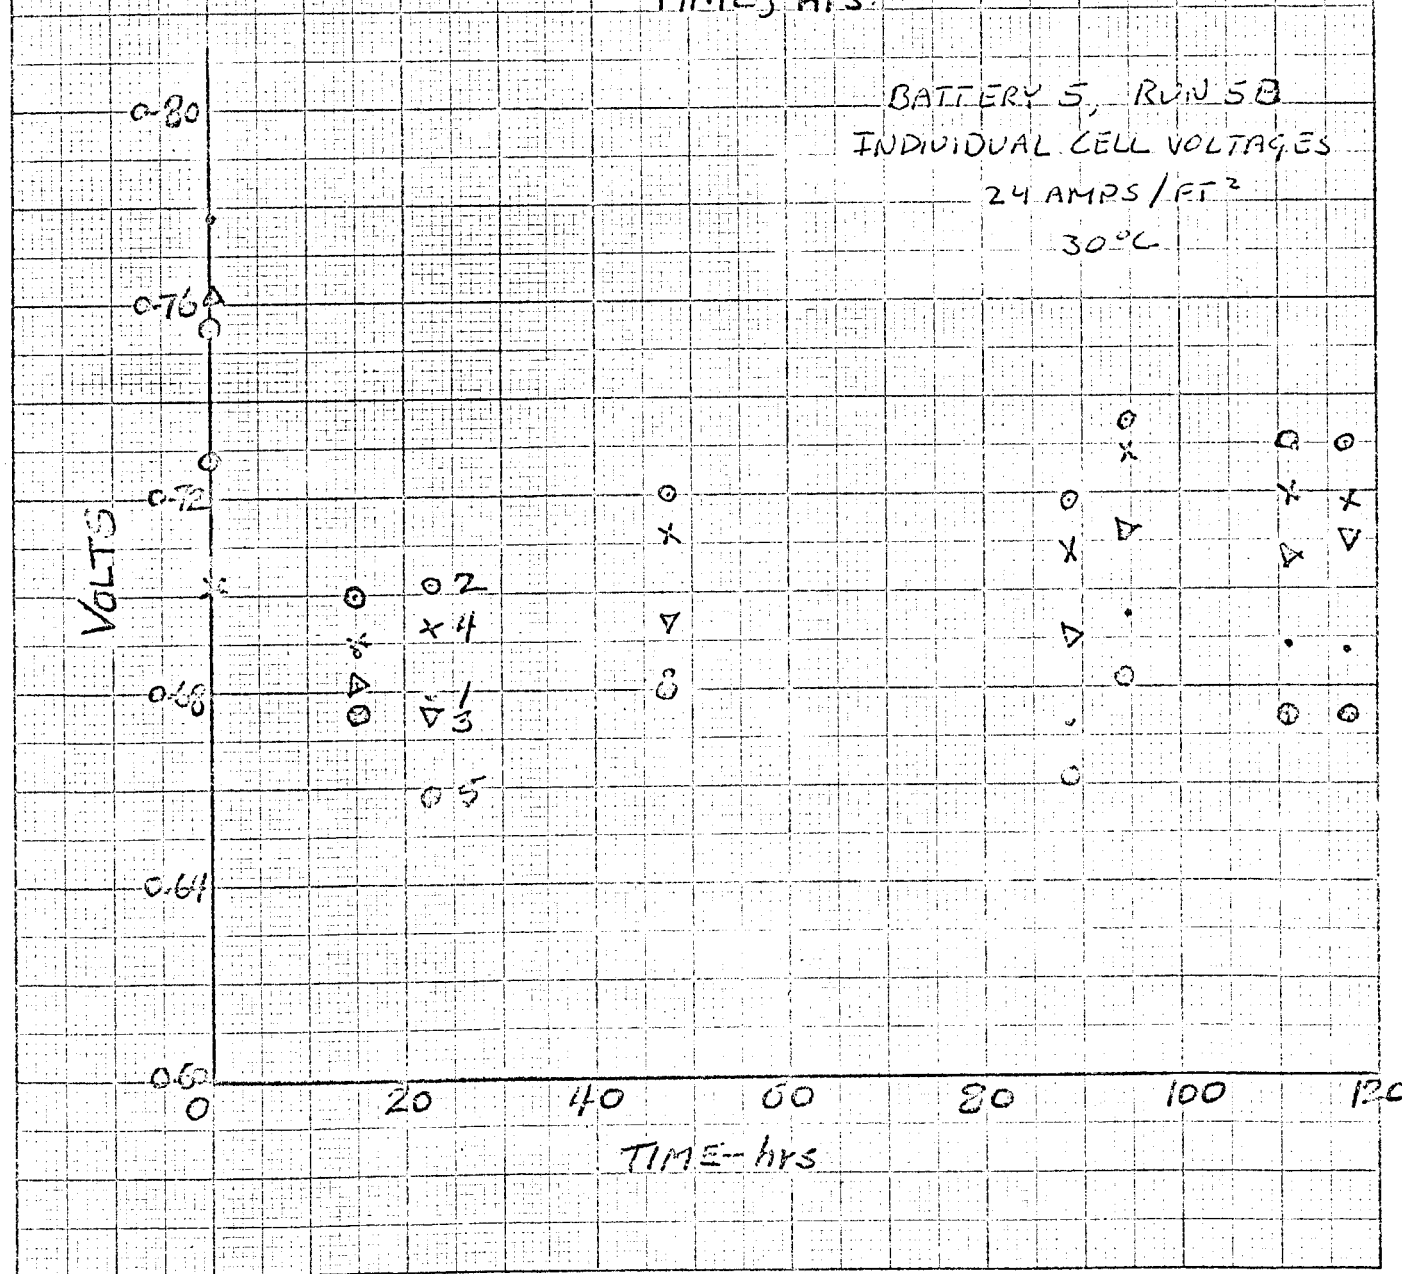 TIME, hrs.
0.80
BATTERY 5, RUN 5B
INDIVIDUAL CELL VOLTAGES
24 AMPS/FT²
30°C
0.76
0.72
VOLTS
2
4
0.68
1
3
5
0.64
0.60
0 20 40 60 80 100 120
TIME-hrs